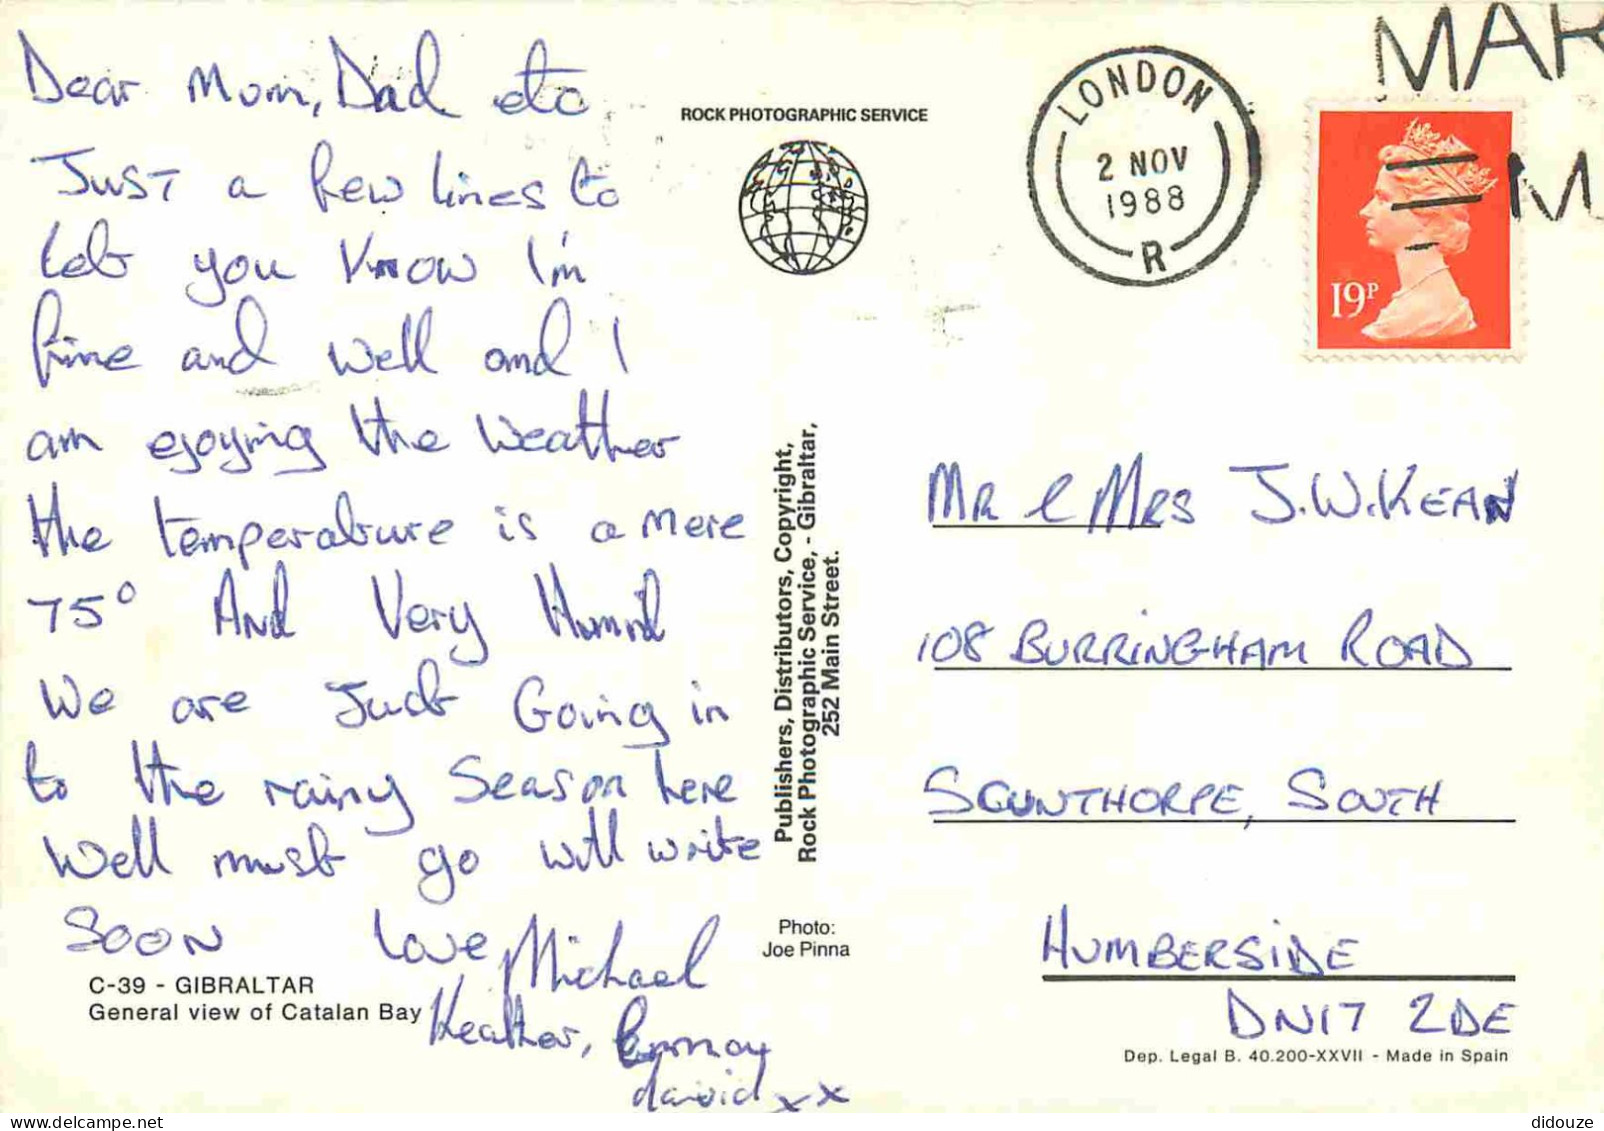 Dear Mom, Dad etc
Just a few lines to
let you know I'm
fine and well and I
am ejoying the weather
the temperature is a mere
75° And Very Humid
We are Just Going in
to the rainy Season here
Well must go will write
SOON Love Michael
Heather,
david xx
C-39 - GIBRALTAR
General view of Catalan Bay
ROCK PHOTOGRAPHIC SERVICE
Publishers, Distributors, Copyright,
Rock Photographic Service, - Gibraltar,
252 Main Street.
Photo:
Joe Pinna
LONDON
2 NOV
1988
R
MAR
M
19P
MR & MRS J.W.KEAN
108 BURRINGHAM ROAD
SCUNTHORPE, SOUTH
HUMBERSIDE
DN17 2DE
Dep. Legal B. 40.200-XXVII - Made in Spain
didouze